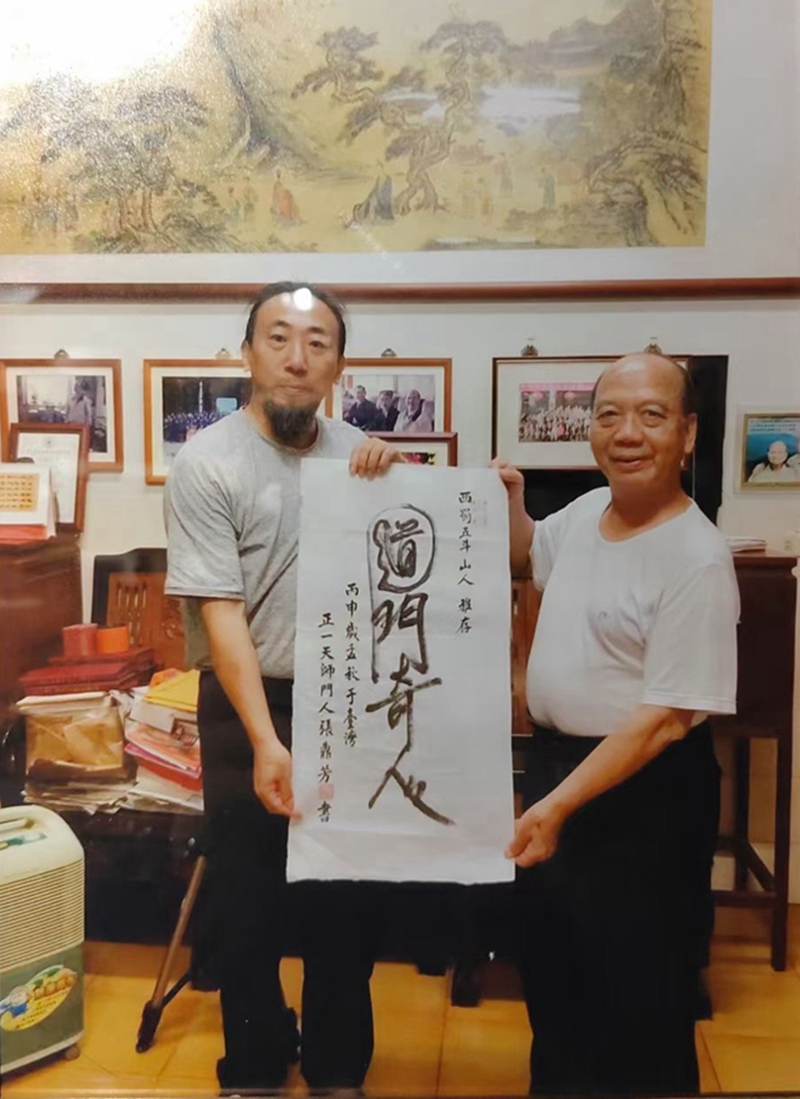 西蜀五斗山人 雅存
道門奇人
丙申歲孟秋于臺灣
正一天師門人張鼎芳 書